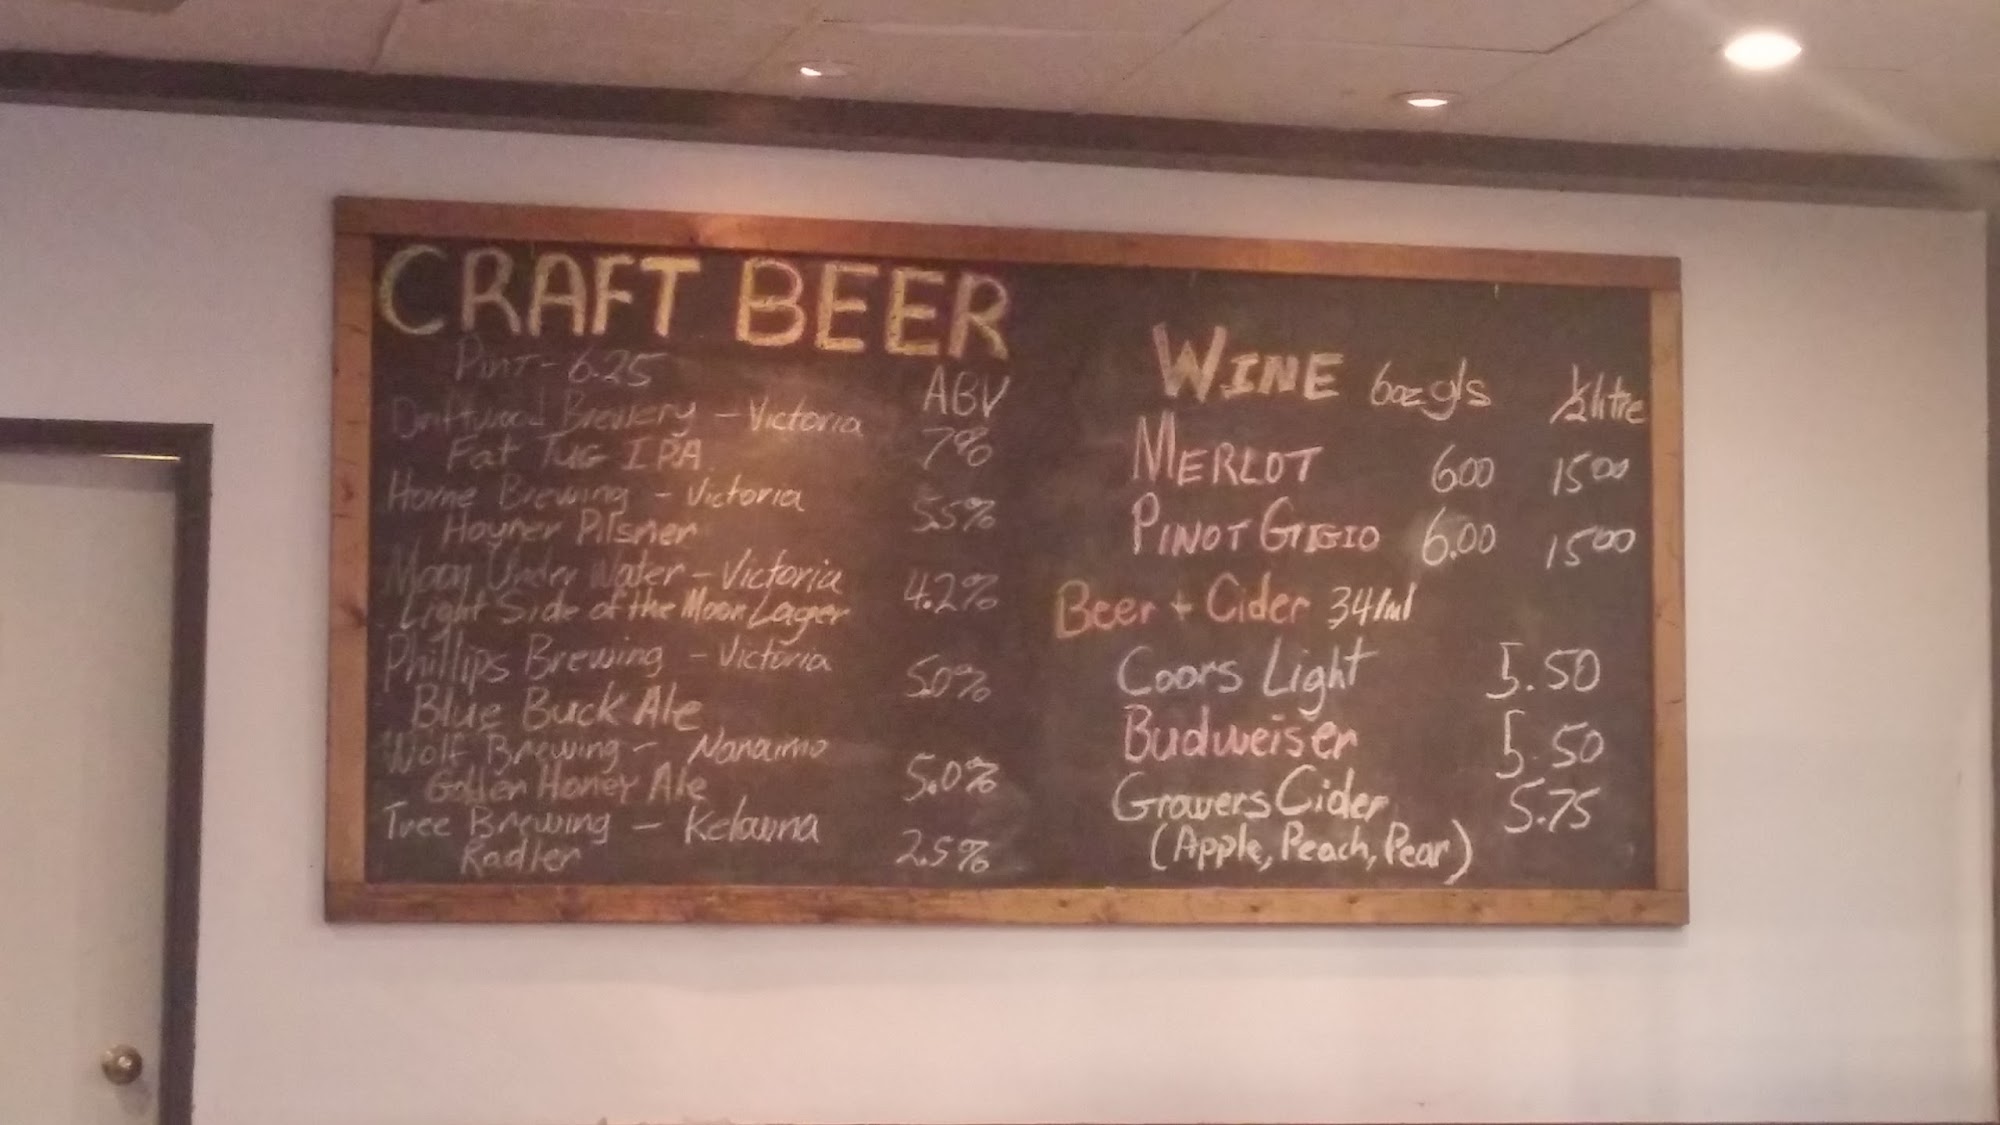 CRAFT BEER
Pint - 6.25
ABV
Driftwood Brewery - Victoria
Fat Tug IPA 7%
Horne Brewing - Victoria
Hoyner Pilsner 5.5%
Moon Under Water - Victoria
Light Side of the Moon Lager 4.2%
Phillips Brewing - Victoria
Blue Buck Ale 5.0%
Wolf Brewing - Nanaimo
Golden Honey Ale 5.0%
Tree Brewing - Kelowna
Radler 2.5%
WINE 6oz gls 1/2 litre
MERLOT 600 1500
PINOT GIGIO 6.00 1500
Beer + Cider 341ml
Coors Light 5.50
Budweiser 5.50
Growers Cider 5.75
(Apple, Peach, Pear)